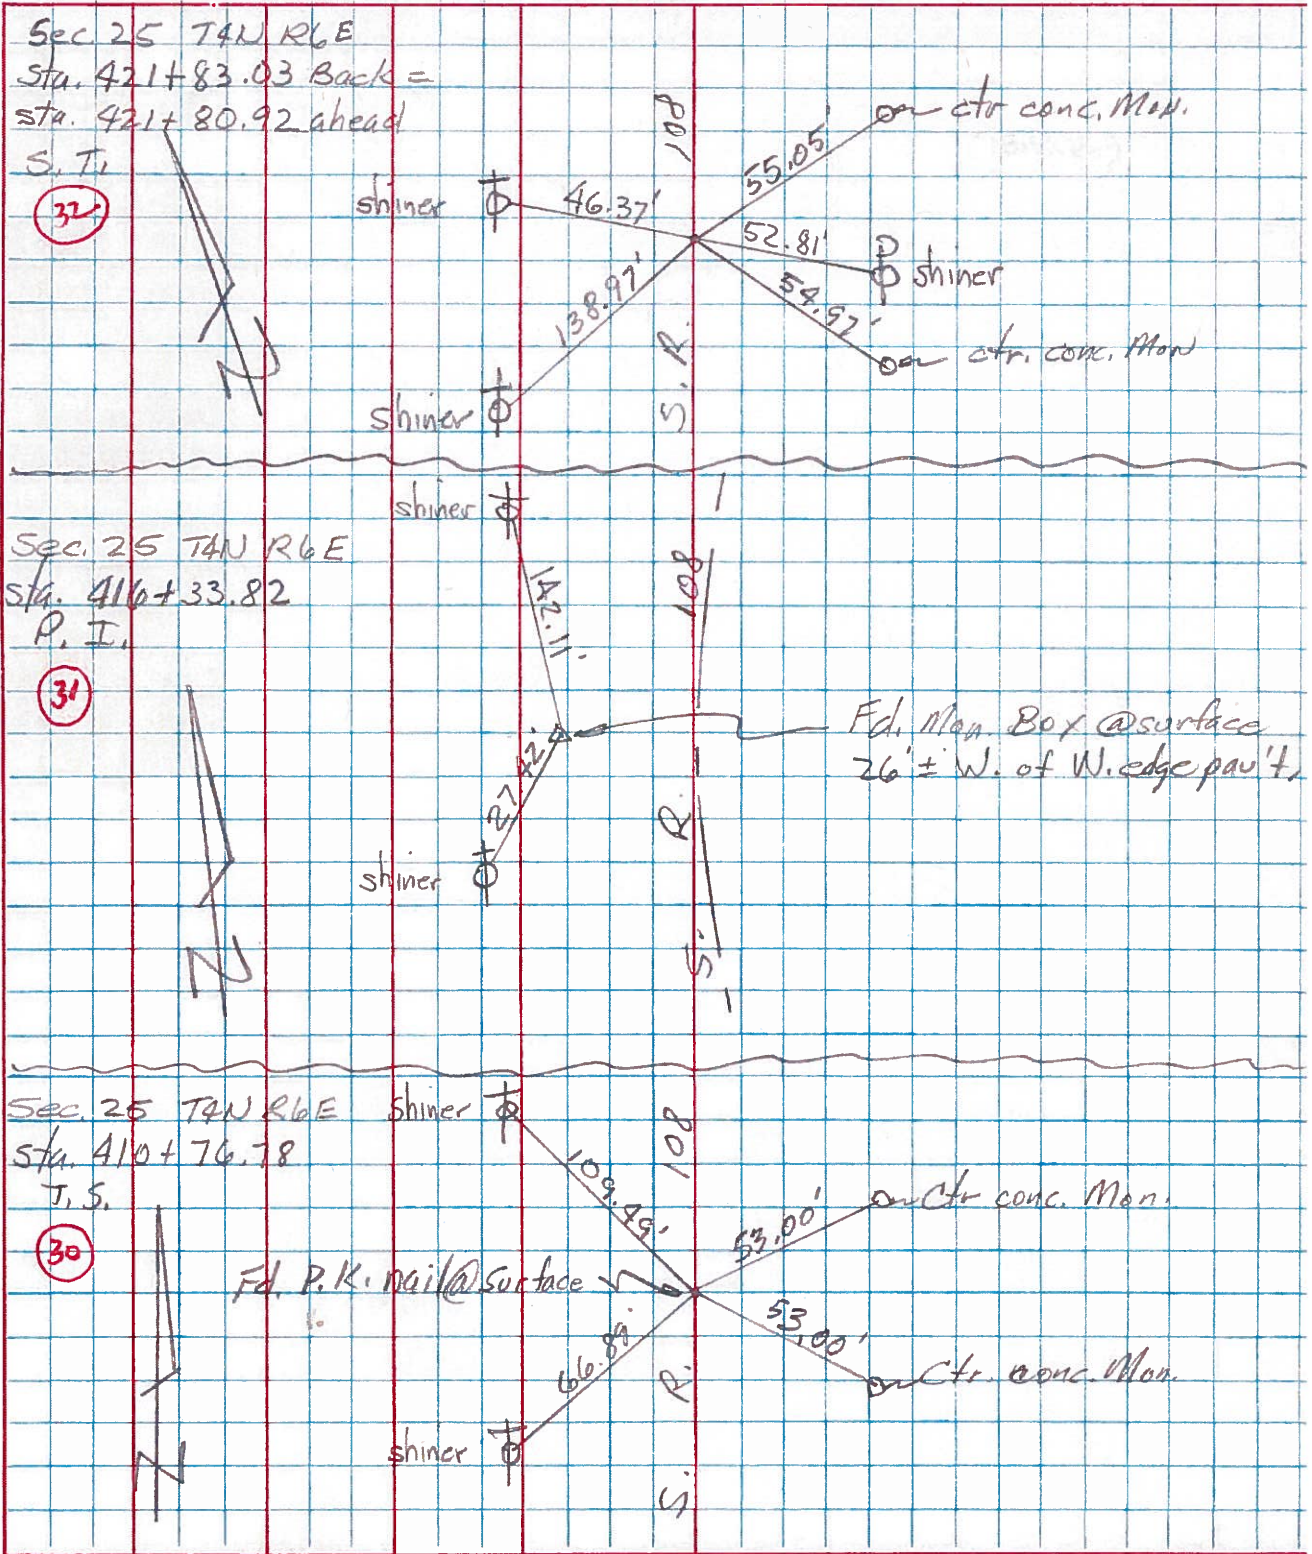 Sec. 25 T4N R6E
sta. 421+83.03 Back =
sta. 421+80.92 ahead
S.T.
32
N
shiner
46.37'
138.97'
shiner
S.R. 108
55.05'
ctr conc. Mon.
52.81'
shiner
54.97'
ctr. conc. Mon
shiner
Sec. 25 T4N R6E
sta. 416+33.82
P.I.
31
N
142.11'
27.42'
shiner
S. R. 108
Fd. Mon. Box @ surface
26'± W. of W. edge pav't.
Sec. 25 T4N R6E
sta. 410+76.78
T.S.
30
N
shiner
109.49'
Fd. P.K. nail @ surface
66.89'
shiner
S. R. 108
53.00'
Ctr conc. Mon.
53.00'
Ctr. conc. Mon.